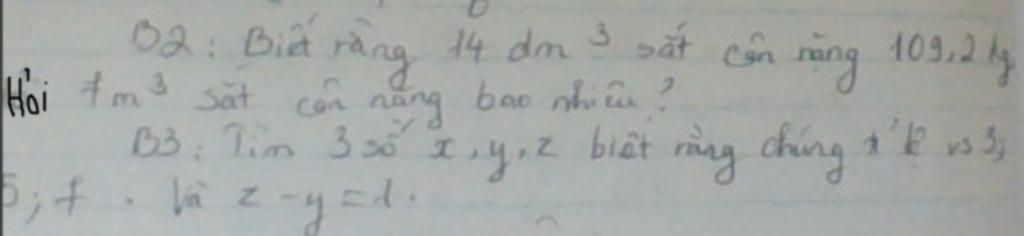 B2: Biết rằng 14 dm³ sắt cân nặng 109,2 kg
Hỏi 1m³ sắt cân nặng bao nhiêu?
B3: Tìm 3 số x, y, z biết rằng chúng tỉ lệ vs 3;
5; 7. Và z - y = 1.